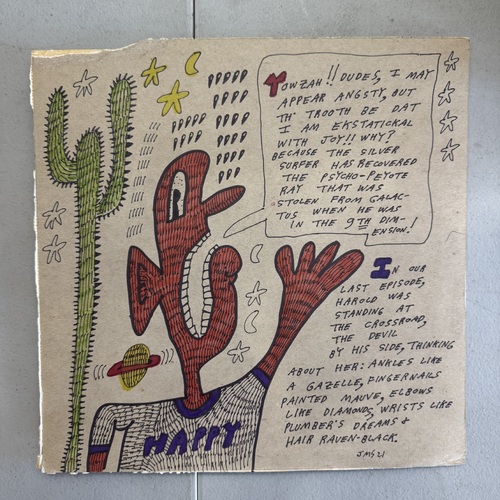 YOWZAH!! DUDES, I MAY
APPEAR ANGSTY, BUT
TH' TROOTH BE DAT
I AM EKSTATICKAL
WITH JOY!! WHY?
BECAUSE THE SILVER
SURFER HAS RECOVERED
THE PSYCHO-PEYOTE
RAY THAT WAS
STOLEN FROM GALAC-
TUS WHEN HE WAS
IN THE 9TH DIM-
ENSION!
IN OUR
LAST EPISODE,
HAROLD WAS
STANDING AT
THE CROSSROAD,
THE DEVIL
BY HIS SIDE, THINKING
ABOUT HER: ANKLES LIKE
A GAZELLE, FINGERNAILS
PAINTED MAUVE, ELBOWS
LIKE DIAMONDS, WRISTS LIKE
PLUMBER'S DREAMS &
HAIR RAVEN-BLACK.
JMS 21
HAPPY